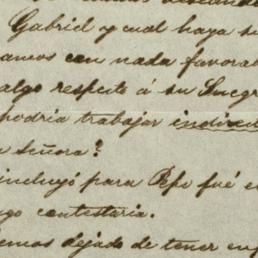 Gabriel y cual haya s
amos con nada favorab
algo respeto á su Suegr
podria trabajar indirec
a señora?
incluyó para Pepe fué e
go contestaria.
emos dejado de tener